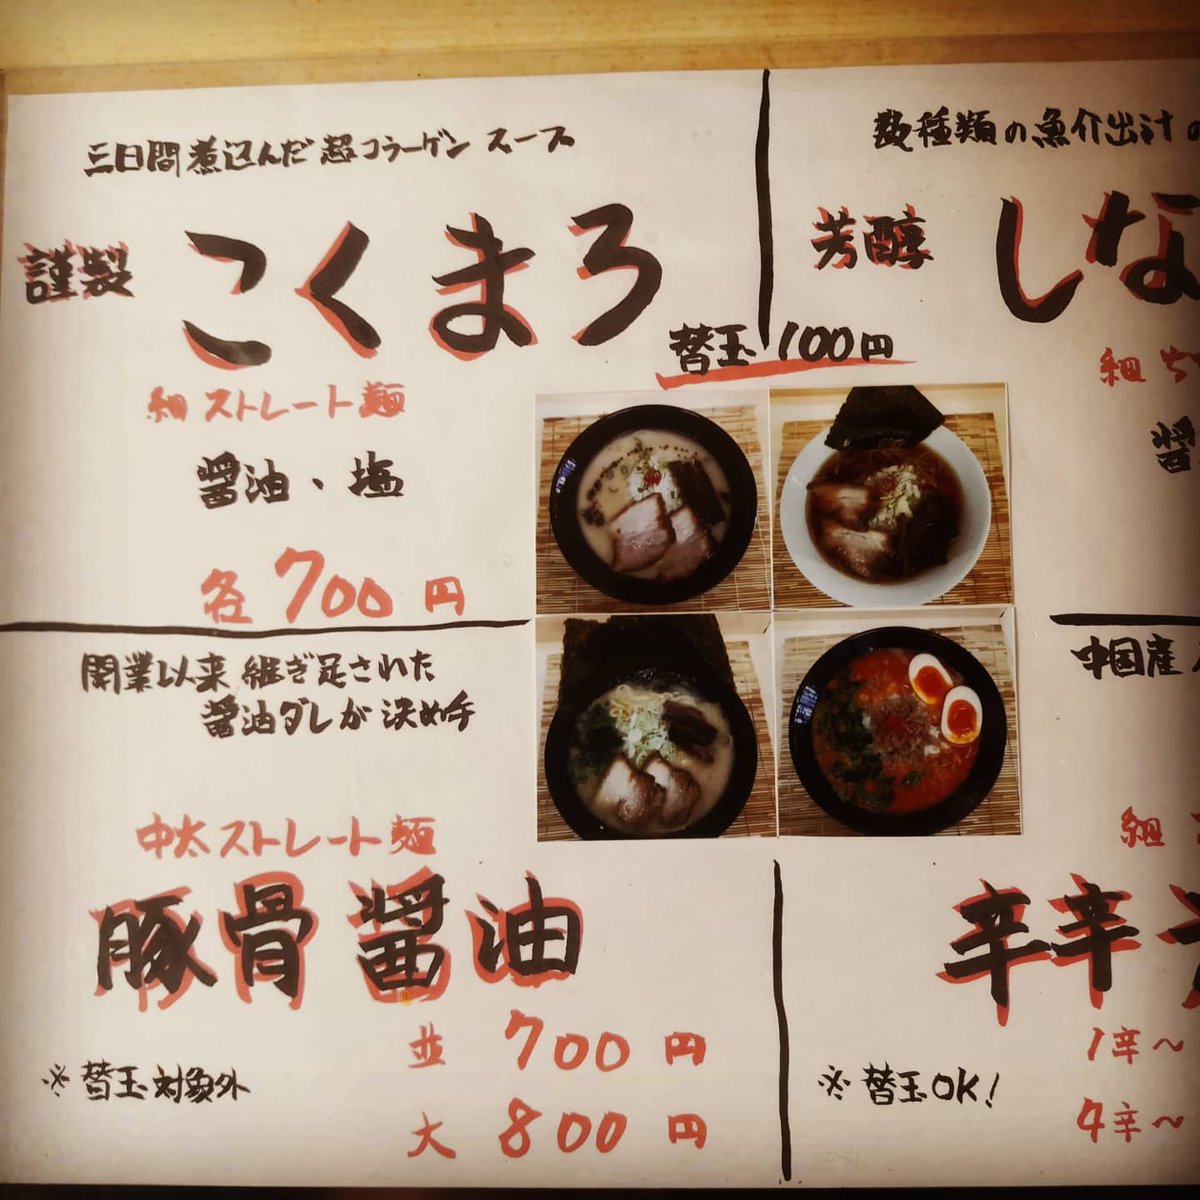 三日間煮込んだ超コラーゲンスープ
謹製 こくまろ
細ストレート麺
醤油・塩
各700円
数種類の魚介出汁の
芳醇 しな
細ち
醤
替玉100円
開業以来継ぎ足された
醤油ダレが決め手
中太ストレート麺
豚骨醤油
並 700円
大 800円
※替玉対象外
中国産
細
辛辛
1辛〜
※替玉OK!
4辛〜